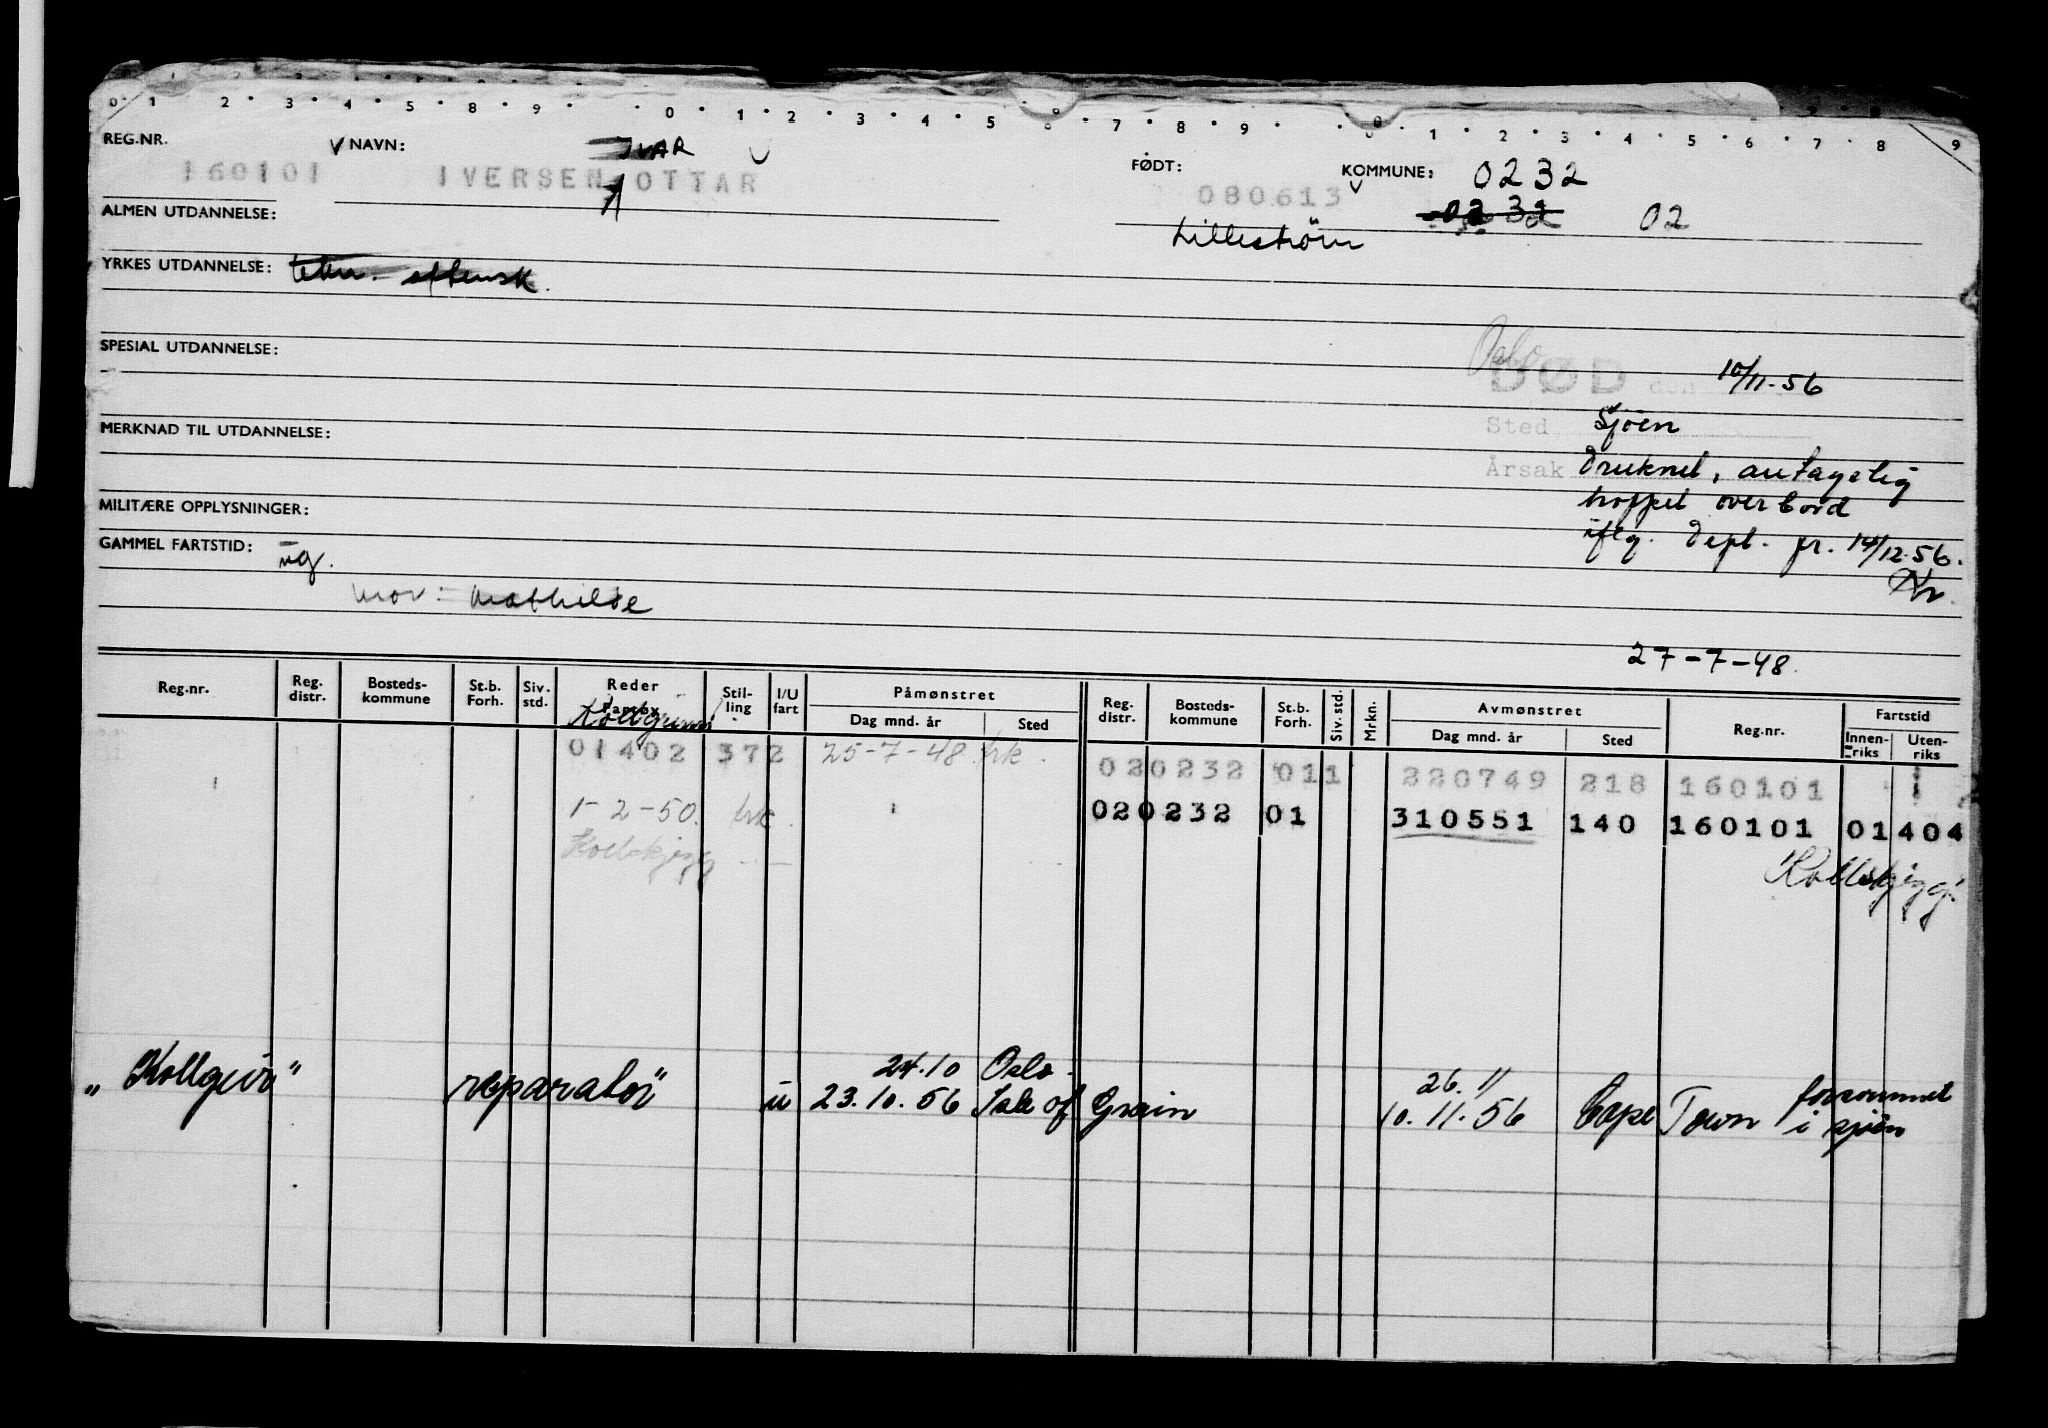 0 1 2 3 4 5 8 9 0 1 2 3 4 5 6 7 8 9 0 1 2 3 4 5 6 7 8 9
REG.NR. NAVN: IVAR FØDT: KOMMUNE: 0232
160101 IVERSEN OTTAR 080613 0232 02
ALMEN UTDANNELSE: Lillestrøm
YRKES UTDANNELSE: tekn. aftensk.
SPESIAL UTDANNELSE: Oslo
DØD den 10/11-56
MERKNAD TIL UTDANNELSE: Sted Sjøen
Årsak Druknet, antagelig
MILITÆRE OPPLYSNINGER: hoppet over bord
GAMMEL FARTSTID: ug. iflg. Dept. pr. 14/12-56.
Kr.
Mor: Mathilde
27-7-48.
Reg.nr. Reg. distr. Bosteds-kommune St.b. Forh. Siv. std. Reder Fartøy Stil-ling I/U fart Påmønstret Dag mnd. år Sted Reg. distr. Bosteds-kommune St.b. Forh. Siv. std. Mrkn. Avmønstret Dag mnd. år Sted Reg.nr. Fartstid Innen-riks Uten-riks
Kollgeirr
01402 372 25-7-48 trk. 020232 011 220749 218 160101
1-2-50. trk. 020232 01 310551 140 160101 01 404
Kollskjegg Kollskjegg
24.10 Oslo 26.11 forsvunnet
"Kollgeir" reparatør u 23.10.56 Isle of Grain 10.11.56 Cape Town i sjøen